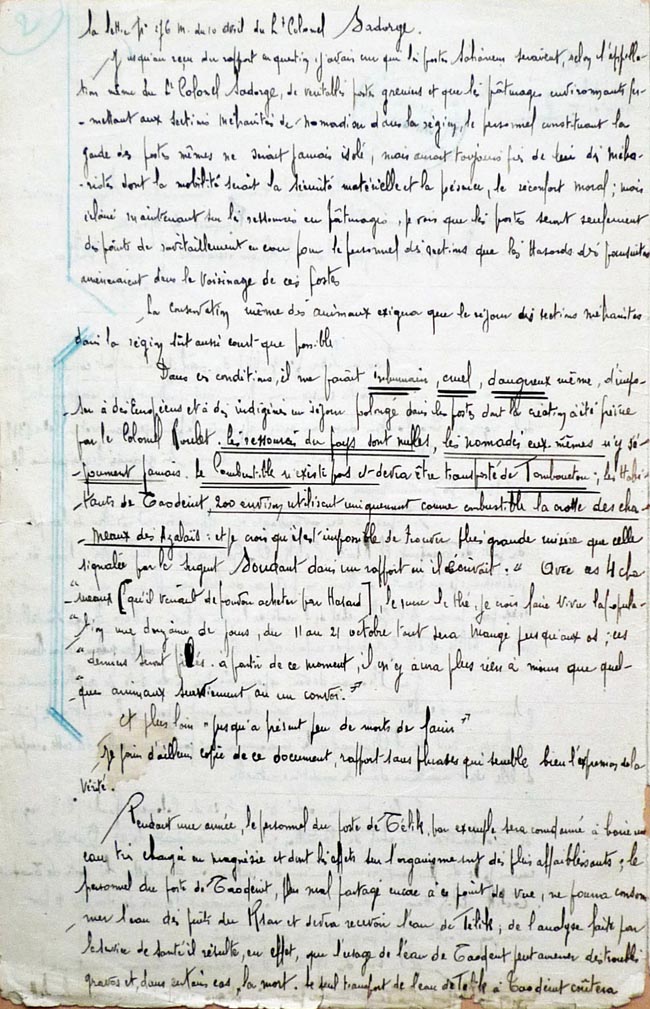 2
la lettre Nº 276 M. du 10 avril du Lt Colonel Sadorge.
Jusqu'au reçu du rapport en question, j'avais cru que les postes Sahariens seraient, selon l'appella-
tion même du Lt Colonel Sadorge, de véritables postes greniers et que les pâturages environnants per-
-mettant aux sections méharistes de nomadiser dans la région, le personnel constituant la
garde des postes mêmes ne serait jamais isolé, mais aurait toujours près de lui des méha-
-ristes dont la mobilité serait la sécurité matérielle et la présence, le réconfort moral ; mais
éclairé maintenant sur les ressources en pâturages, je vois que les postes seront seulement
des points de ravitaillement en eau pour le personnel des sections que les hasards des poursuites
amèneraient dans le voisinage de ces postes
La conservation même des animaux exigera que le séjour des sections méharistes
dans la région soit aussi court que possible
Dans ces conditions, il me paraît inhumain, cruel, dangereux même, d'impo-
-ser à des Européens et à des indigènes un séjour prolongé dans les postes dont la création a été
par le Colonel Roulet. les ressources du pays sont nulles, les nomades eux-mêmes n'y sé-
-journent jamais. le Combustible n'existe pas et devra être transporté de Tombouctou ; les Habi-
-tants de Taodenit, 200 environ, utilisent uniquement comme combustible la crotte des cha-
-meaux des Azalaïs : et je crois qu'il est impossible de trouver plus grande misère que celle
signalée par le Sergent Bougant dans un rapport où il écrivait : " Avec ces 4 cha
"meaux [qu'il venait de pouvoir acheter par Hasard], le sucre le thé, je crois faire vivre la popula-
"tion une douzaine de jours, du 11 au 21 octobre tout sera mangé jusqu'aux os ; ces
"derniers seront pilés. à partir de ce moment, il n'y aura plus rien à moins que quel-
"que animaux surviennent ou un convoi."
et plus loin " jusqu'à présent peu de morts de faim "
Je joins d'ailleurs copie de ce document, rapport sans phrases qui semble bien l'expression de la
vérité.
Pendant une année, le personnel du poste de Télik, par exemple, sera condamné à boire une
eau très chargée en magnésie et dont les effets sur l'organisme sont des plus affaiblissants ; le
personnel du poste de Taodénit, plus mal partagé encore à ce point de vue, ne pourra consom
mer l'eau des puits du Ksar et devra recevoir l'eau de Télik ; de l'analyse faite par
le service de santé il résulte, en effet, que l'usage de l'eau de Taodenit peut amener des troubles
graves et, dans certains cas, la mort. le seul transport de l'eau de Telik à Taodenit coûtera